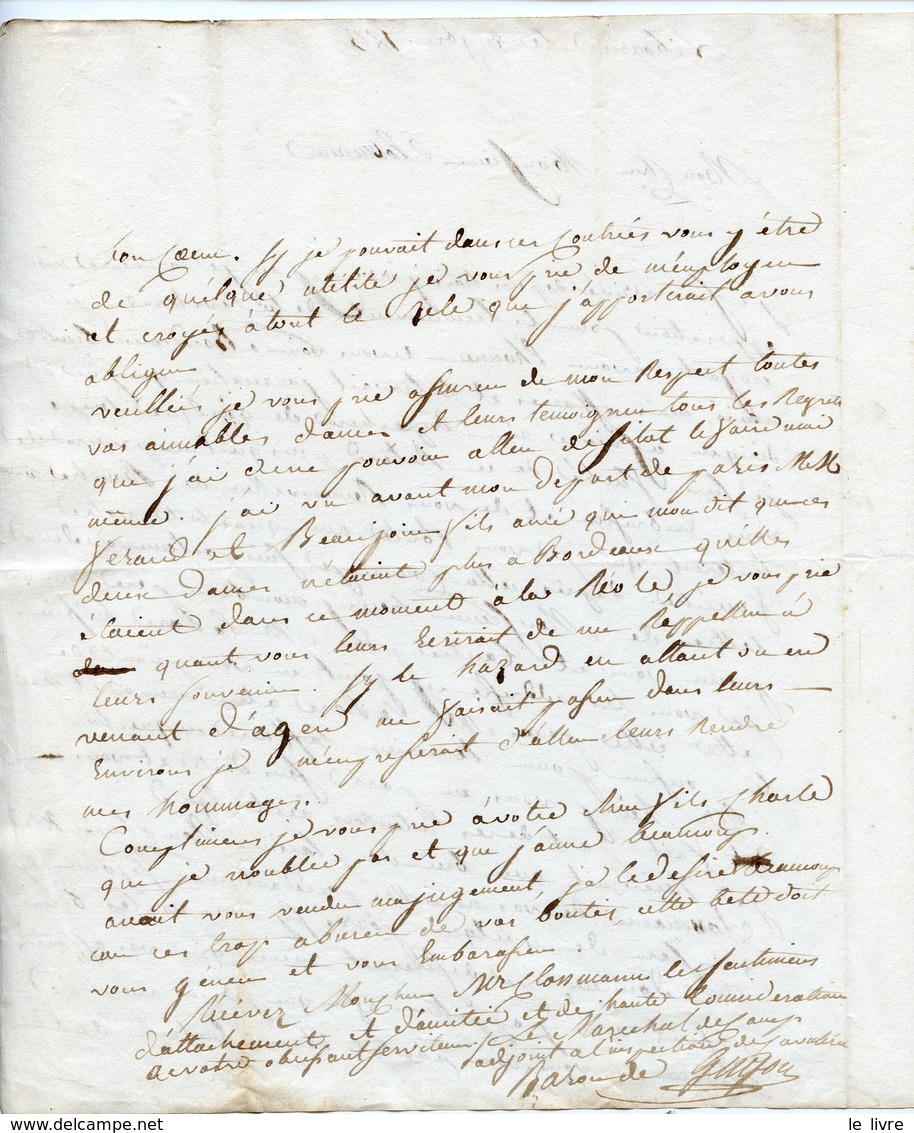 bon Coeur. Sy je pouvait dans ces Contrées vous y être
de quélque utilité je vous prie de m'employer
et croyéz à tout le Zele que j'apporterait a vous
obliger
veuilléz je vous prie assurer de mon Respect toutes
vos aimables dames et leurs temoigner tous les Regrets
que j'ai de ne pouvoir aller de sitot le faire moi
même. j'ai vu avant mon depart de paris MM
et Beaujoin fils ainé que m'on dit que ces
deux Dames n'etaient plus a Bordeaux qu'elles
étaient dans ce moment à la Reole, je vous prie
quant vous leurs Ecrirait de me Rappeller à
leurs souvenir. Sy le hazard en allant ou en
venant d'agen me faisait passer dans leurs
Environs je m'émpresserait d'aller leurs Rendre
mes hommages.
Complimens je vous prie à votre Mr fils Charle
que je n'oublie pas et que j'aime beaucoup.
avait vous vendu ma jugement, je le desire beaucoup
car ces trop abuser de vos bontés, cette bete doit
vous géner et vous Embarasser
Recevez Mon cher Mr Clossmann les sentimens
d'attachement et d'amitié et de haute Considération
de votre obeissant serviteur. Le Maréchal de Camp
adjoint a l'inspection de Cavalerie
Baron de Guiton
le livre